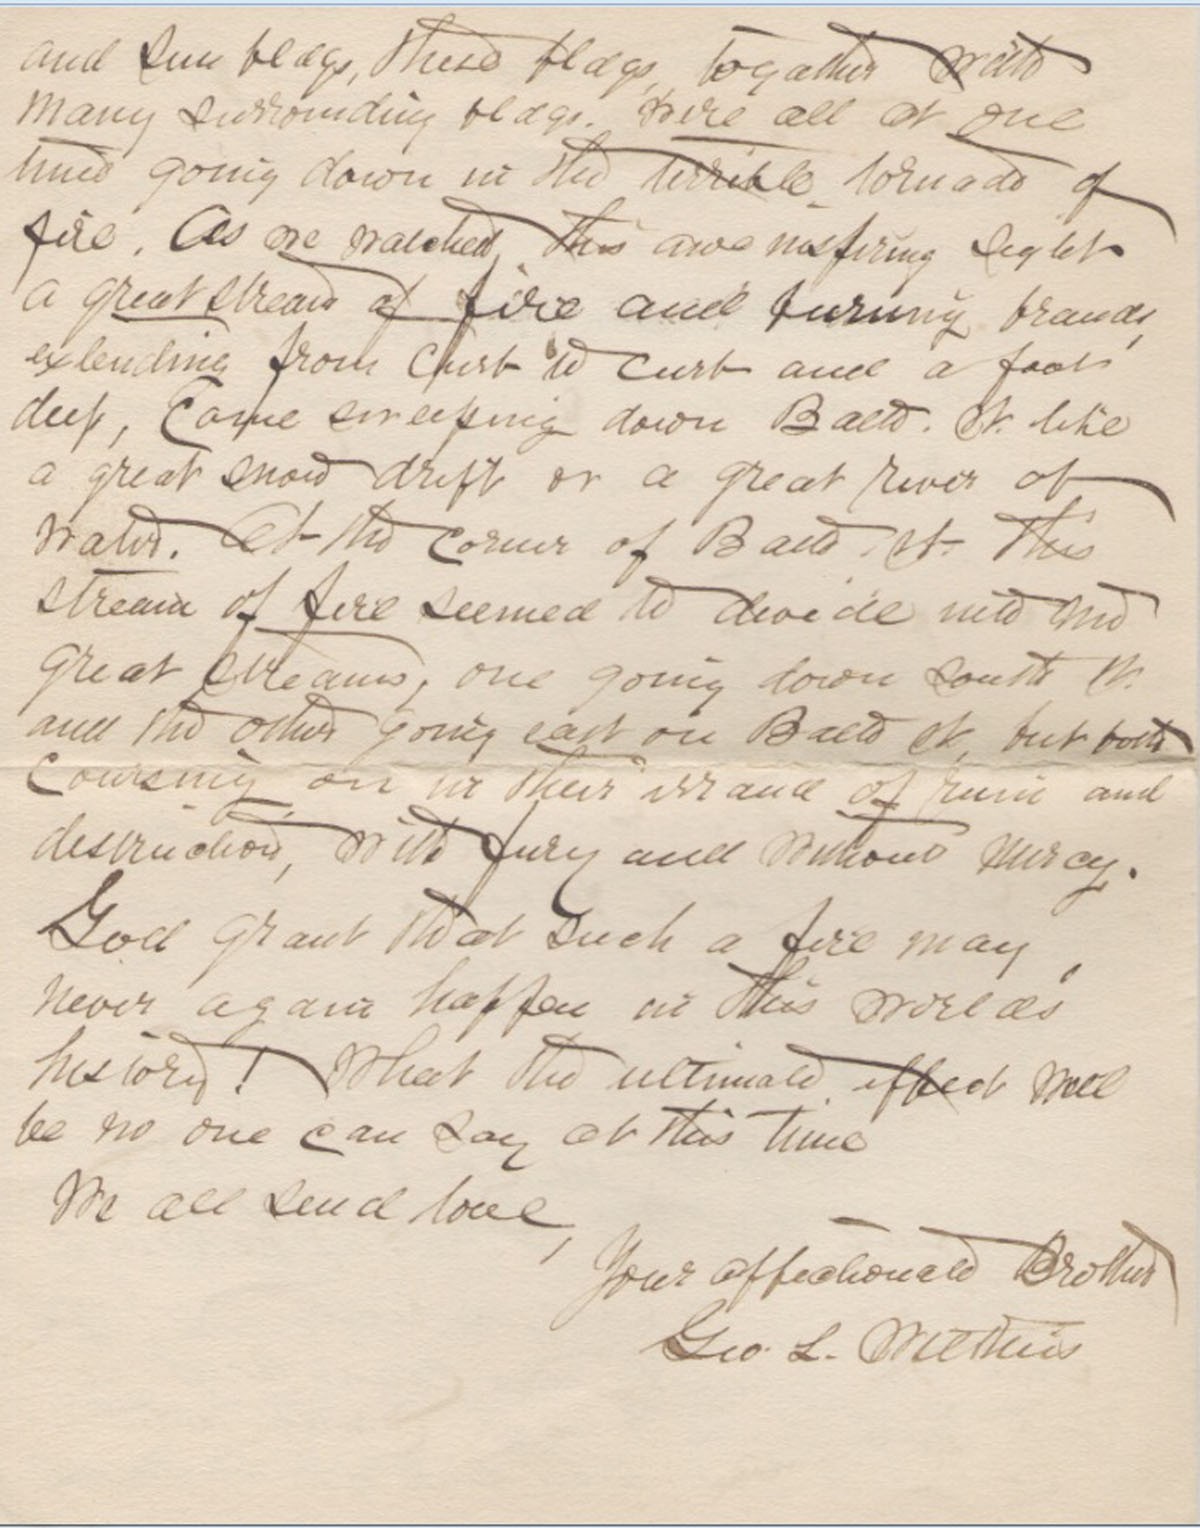 and Sun bldgs, these bldgs, together with
many surrounding bldgs. were all at one
time going down in the terrible tornado of
fire. As we watched this awe inspiring sight
a great stream of fire and burning brands,
extending from curb to curb and a foot
deep, came sweeping down Balto. St. like
a great snow drift or a great river of
water. At the corner of Balto. St. this
stream of fire seemed to divide into two
great streams, one going down South St.
and the other going east on Balto St, but both
coursing on in their errand of ruin and
destruction, with fury and without mercy.
God grant that such a fire may
never again happen in this world's
history! What the ultimate effect will
be no one can say at this time
We all send love,
Your affectionate Brother
Geo. L.